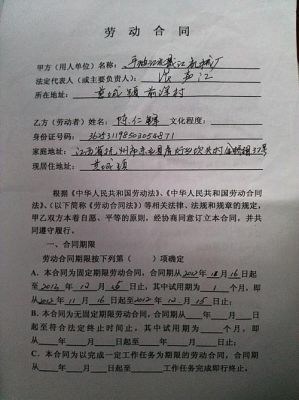 劳动合同
甲方（用人单位）名称：
法定代表人（或主要负责人）：
所在地址：黄城镇前洋村
乙方（劳动者）姓名： 文化程度：
身份证号码：
家庭地址：江西省抚州市
现居住地址：黄城镇
根据《中华人民共和国劳动法》、《中华人民共和国劳动合同
法》、（以下简称《劳动法》）等相关法律、法规和规章的规定，
甲乙双方本着自愿、平等的原则，经协商同意订立本合同，并共
同遵守履行。
一、合同期限
劳动合同期限按下列第（ ）项确定
A．本合同为固定期限劳动合同，合同期从2012年 月16日起
至 年12月 日止，其中试用期为1个月，即
从2012年11月16日起至2012年12月15日止；
B．本合同为无固定期限劳动合同，合同期从 年 月 日
起至符合法定终止时间止，其中试用期为 个月，即
从 年 月 日起至 年 月 日止；
C．本合同为以完成一定工作任务为期限的劳动合同，合同期
从 年 月 日起至 工作任务完成即行终止。